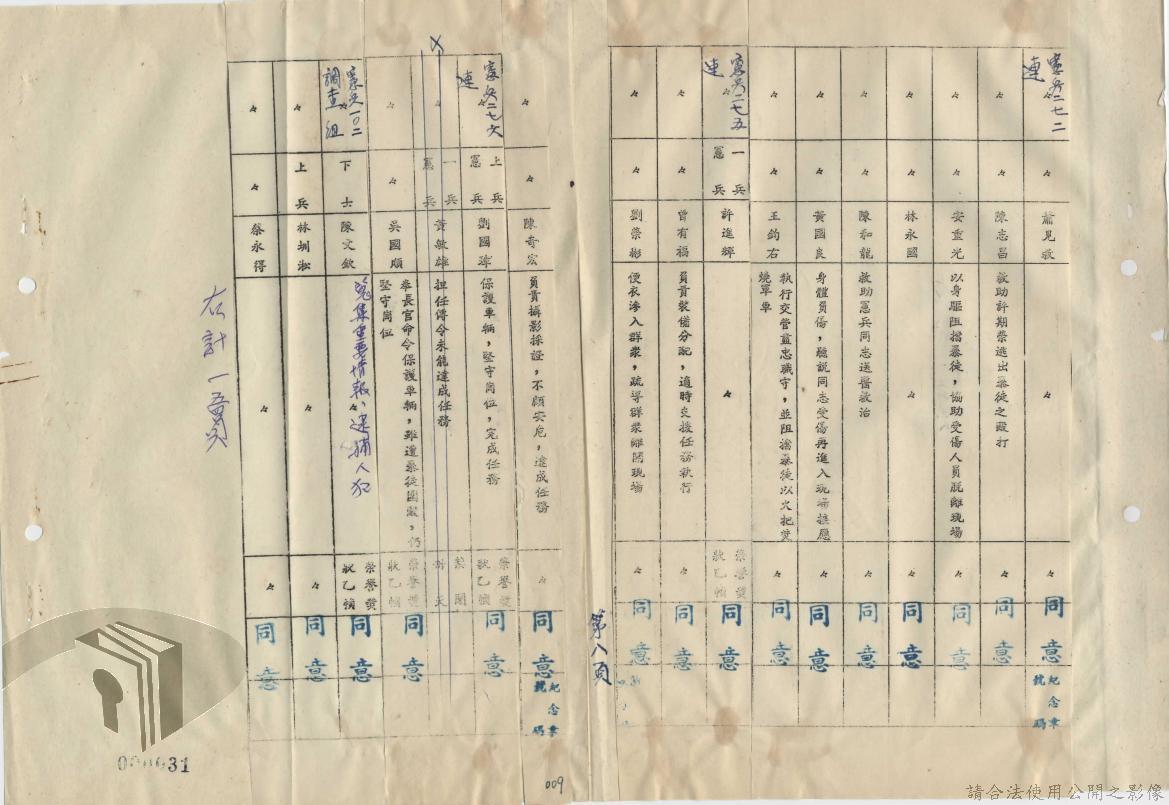 憲兵二七二連
〃
蕭見政
〃
〃
同意
紀念章號碼
〃
〃
陳志昌
救助許期榮逃出暴徒之毆打
〃
同意
〃
〃
安重光
以身軀阻擋暴徒，協助受傷人員脫離現場
〃
同意
〃
〃
林永國
〃
〃
同意
〃
〃
陳和龍
救助憲兵同志送醫救治
〃
同意
〃
〃
黃國良
身體負傷，聽說同志受傷再進入現場接應
〃
同意
〃
〃
王鈞右
執行交管盡忠職守，並阻擋暴徒以火把焚燒軍車
〃
同意
憲兵二七五連
一兵
憲兵
許進輝
〃
榮譽獎狀乙幀
同意
〃
〃
曾有福
負責裝備分配，適時支援任務執行
〃
同意
〃
〃
劉榮彬
便衣滲入群眾，疏導群眾離開現場
〃
同意
第八頁
〃
〃
陳奇宏
負責攝影採證，不顧安危，達成任務
〃
同意
紀念章號碼
憲兵二七六連
上兵
憲兵
劉國瑋
保護車輛，堅守崗位，完成任務
榮譽獎狀乙幀
同意
〃
一兵
憲兵
黃敏雄
擔任傳令未能達成任務
〃
〃
吳國順
奉長官命令保護車輛，雖遭暴徒圍毆，仍堅守崗位
榮譽獎狀乙幀
同意
憲兵一〇二調查組
下士
陳文欽
蒐集重要情報、逮捕人犯
榮譽獎狀乙幀
同意
〃
上兵
林圳淞
〃
〃
同意
〃
〃
蔡永得
〃
〃
同意
右計一五員
009
31
請合法使用公開之影像